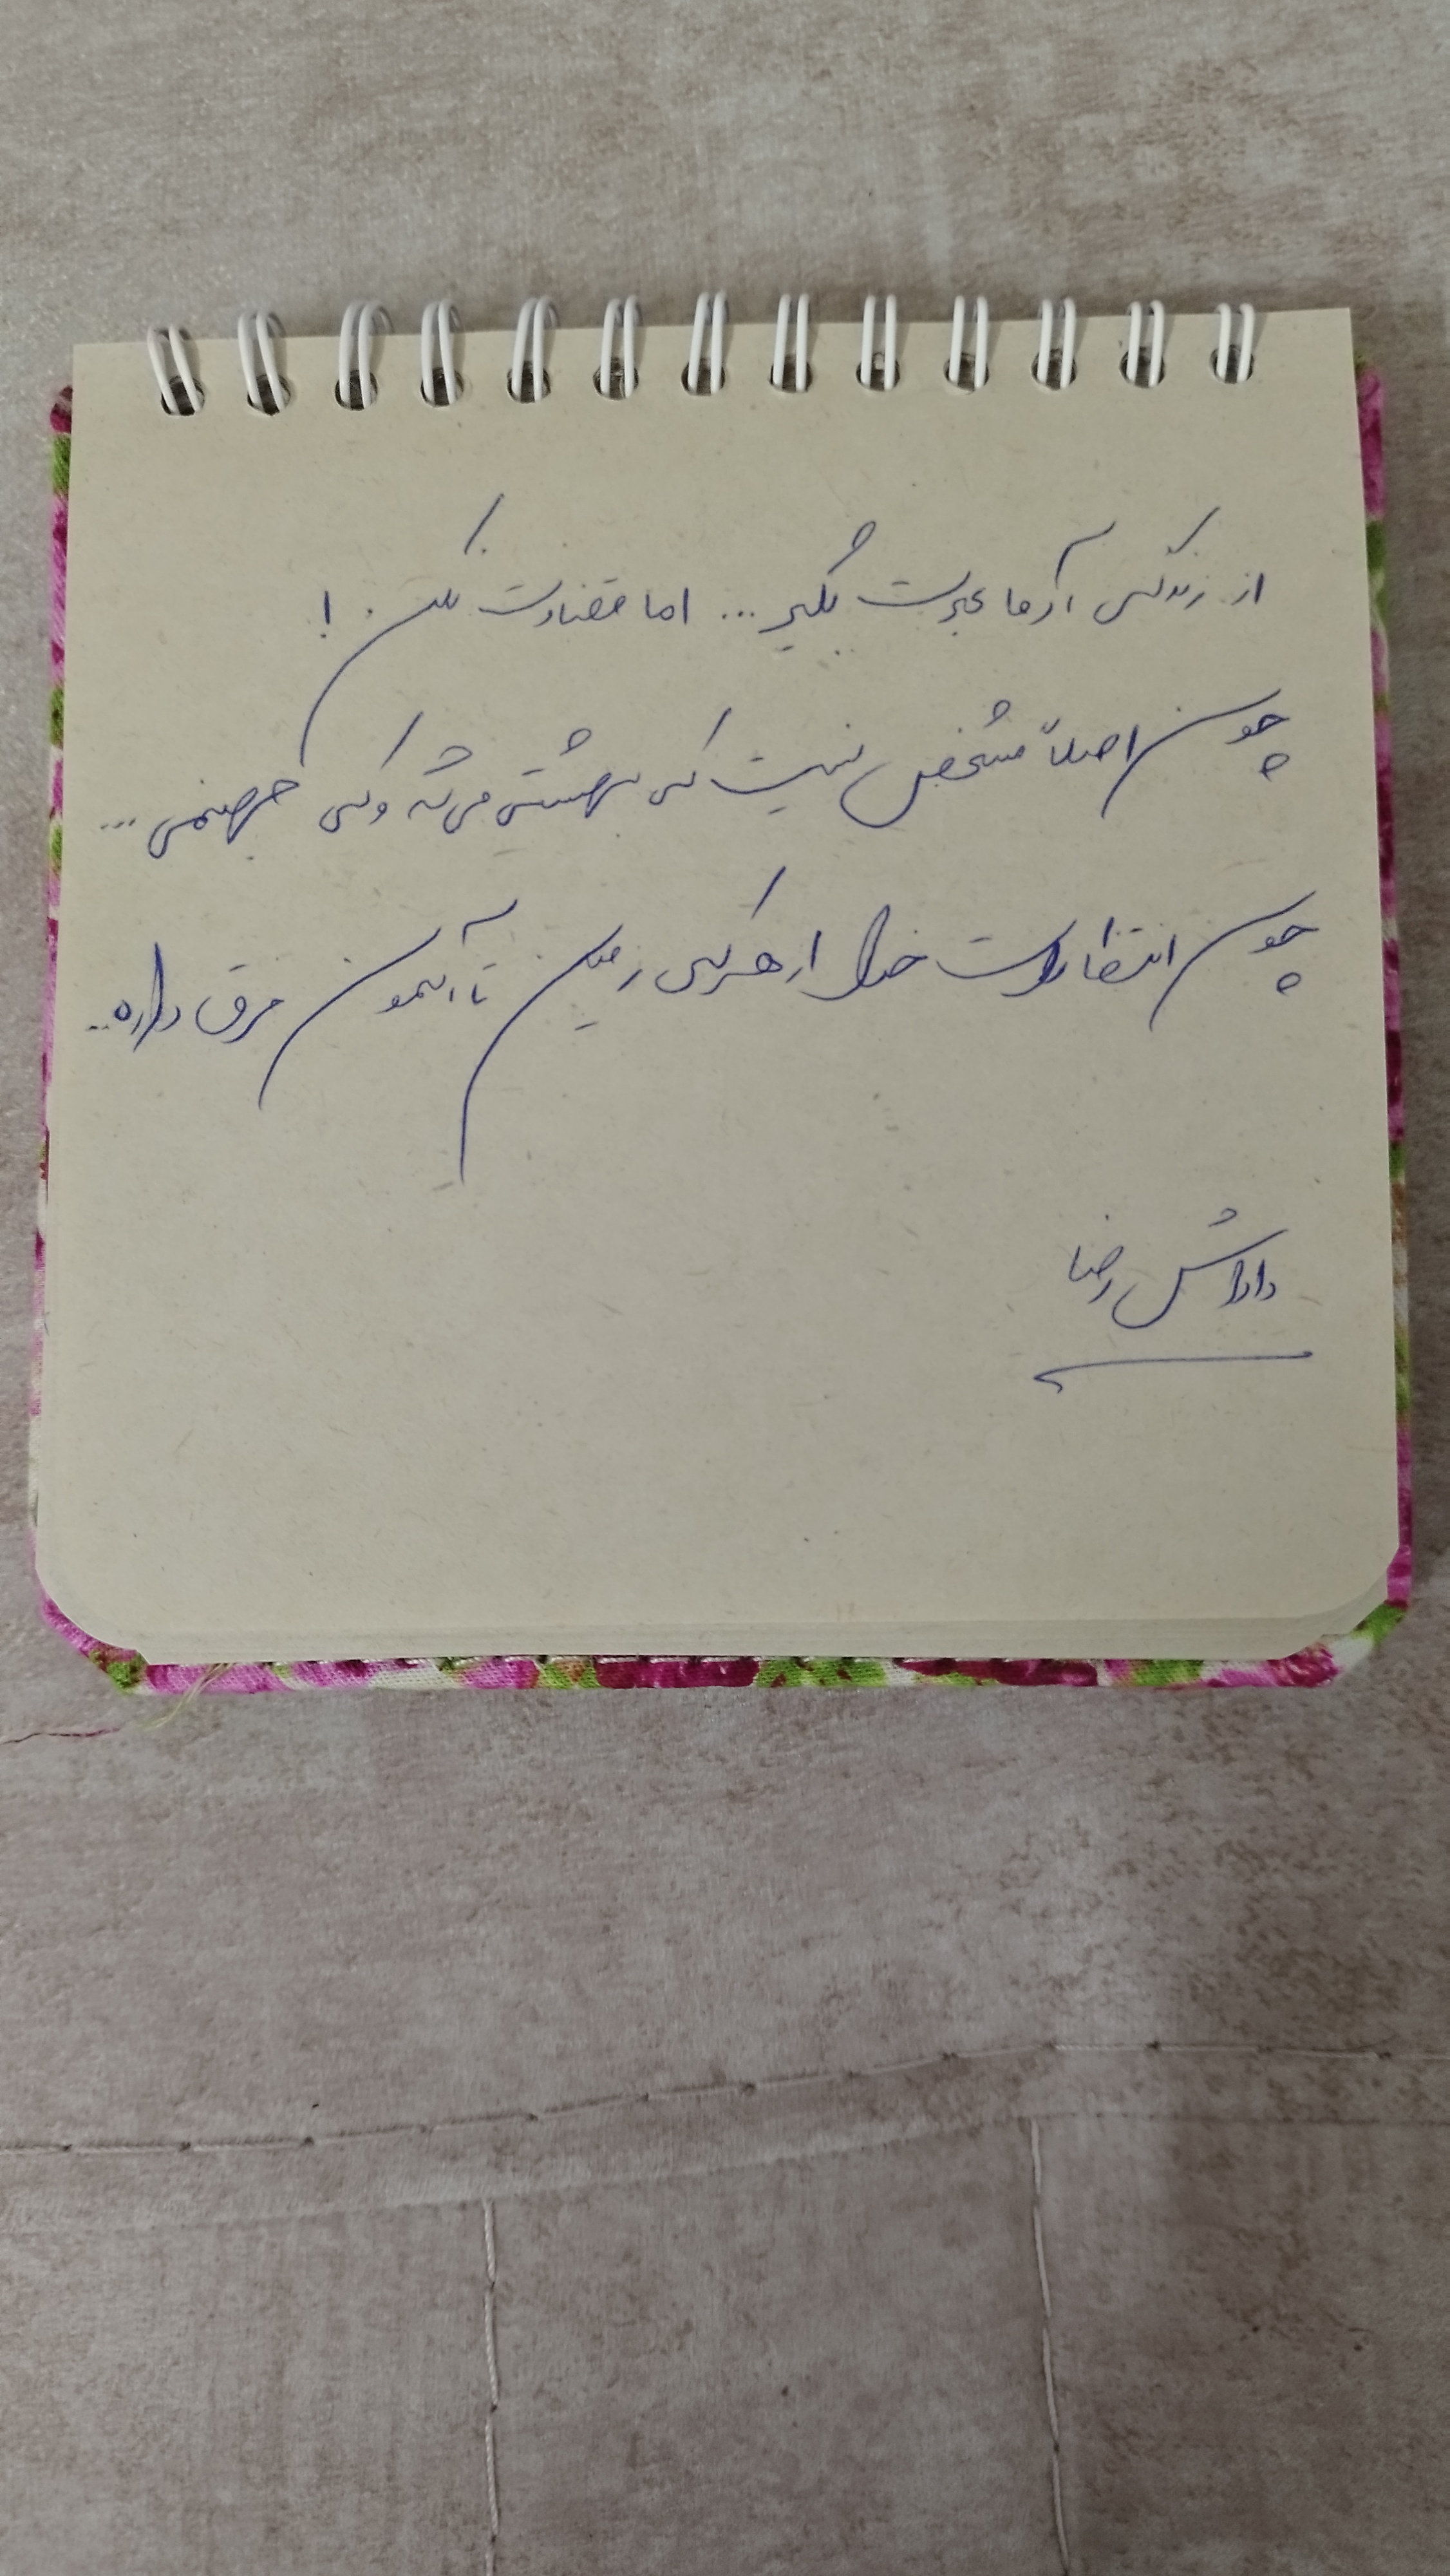 از زندگی آدما عبرت بگیر... اما قضاوت نکن!
چون اصلاً مشخص نیست کی بهشتی می‌شه و کی جهنمی...
چون انتظارات خدا از هر کسی زمین تا آسمون فرق داره..
داداش رضا